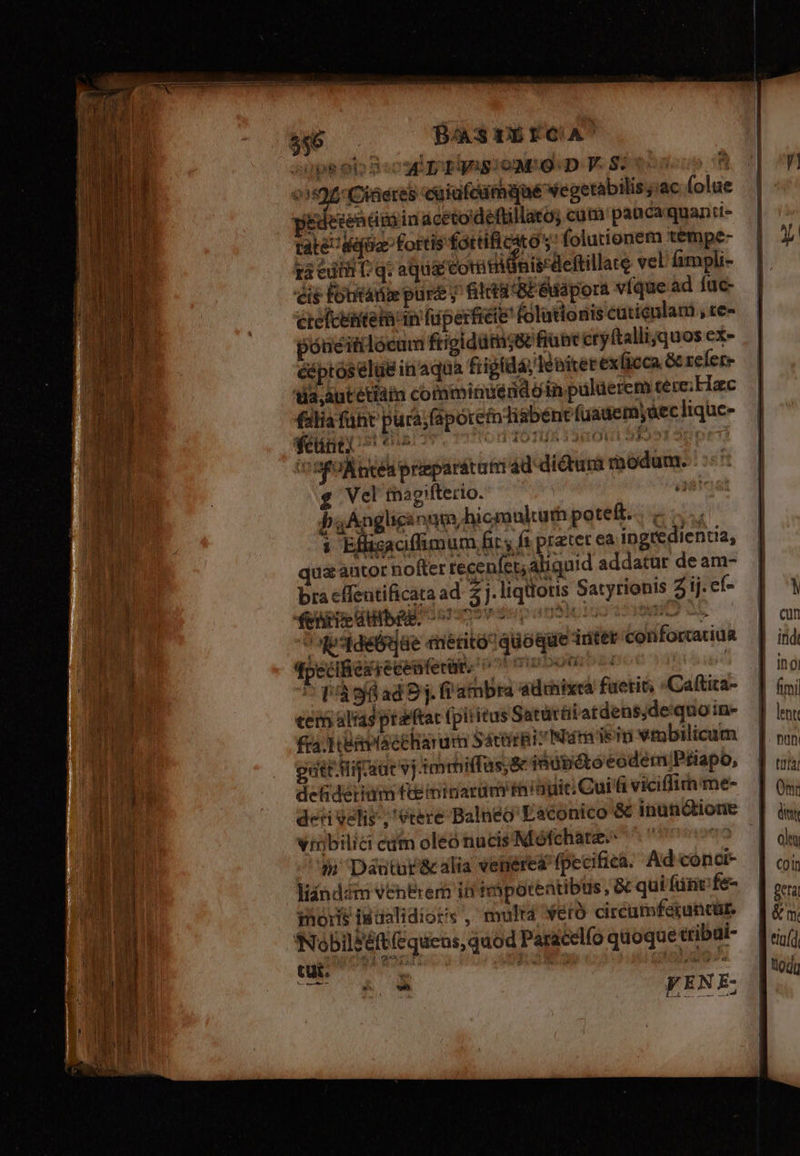 356 BASILICA
ALIVS MODVS.
Cineres cuiuscumque vegetabilis, ac solue
pedetentim in aceto destillato, cum pauca quanti-
tate aquæ fortis fortificato, solutionem tempe-
ra cum q. aquæ communis destillatę vel simpli-
cis fontanæ puræ, filtra &amp; euapora vsque ad suc-
crescentem in superficie solutionis cuticulam, re-
pone in locum frigidum, &amp; fiunt crystalli, quos ex-
ceptos elue in aqua frigida, leniter exsicca &amp; reser-
ua, aut etiam comminuendo in puluerem tere. Hæc
salia sunt pura, saporem habent suauem, nec lique-
scunt.
f Antea præparatum ad dictum modum.
g Vel magisterio.
h Anglicanum, hic multum potest.
i Efficacissimum fit, si præter ea ingredientia,
quæ autor noster recenset, aliquid addatur de am-
bra essentificata ad ʒ j. liquoris Satyrionis ʒ ij. es-
sentiæ
k Ideoque merito quoque inter confortatiua
specifica recensetur.
l ad ℈ j. si ambra admixta fuerit, Castita-
tem alias præstat spiritus Saturni ardens, de quo in-
fra. Item saccharum Saturni: Nam is in vmbilicum
gutt. iiij. aut vj. immissus, &amp; inuncto eodem Priapo,
desiderium fœminarum minuit. Cui si vicissim me-
deri velis, vtere Balneo Laconico &amp; inunctione
vmbilici cum oleo nucis Moschatæ.
m Dantur &amp; alia venerea specifica. Ad conci-
liandam venerem in impotentibus, &amp; qui sunt fe-
moris inualidioris, multa vero circumferuntur.
Nobilis est sequens, quod Paracelso quoque tribui-
tur.
VENE-